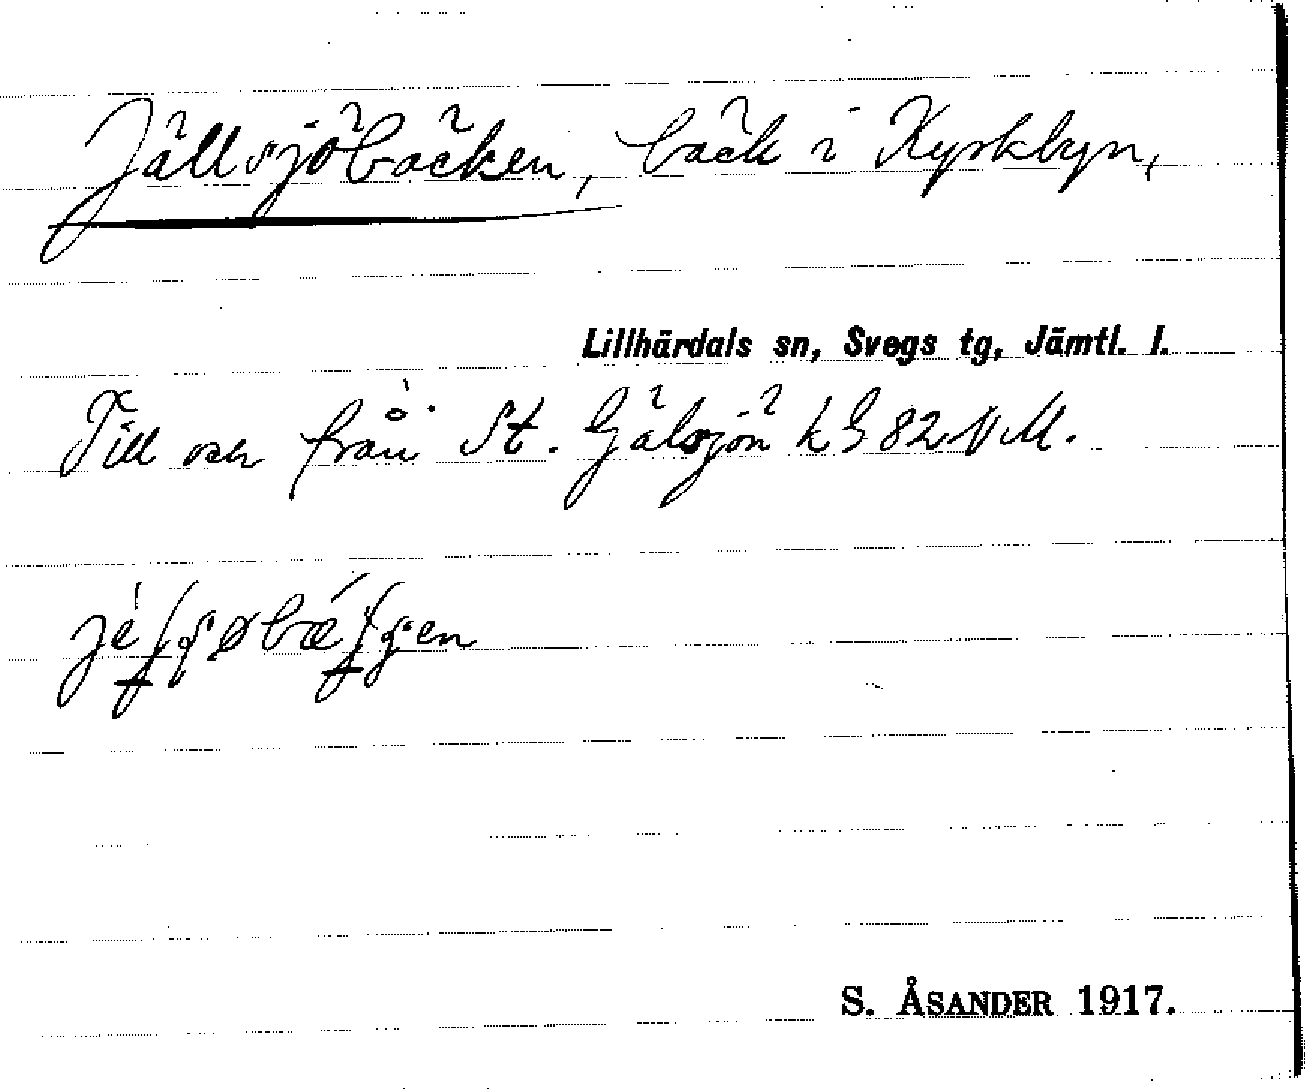 Jällsjöbäcken, bäck i Kyrkbyn,
Lillhärdals sn, Svegs tg, Jämtl. l.
Till och från St. Gälsjön k G 82 N M.
S. ÅSANDER 1917.